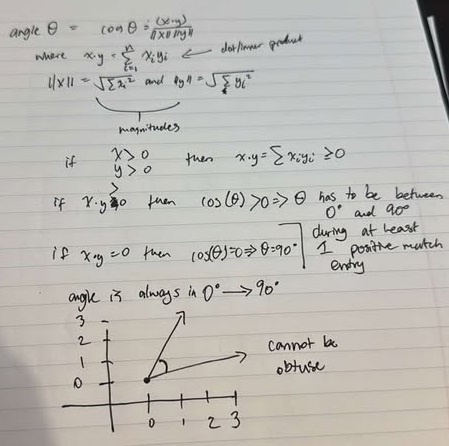 angle θ = cos θ = (x·y) / ||x|| ||y||
where x·y = Σ_{i=1}^{n} x_i y_i ← dot/inner product
||x|| = √Σ x_i² and ||y|| = √Σ y_i²
magnitudes
if x > 0 then x·y = Σ x_i y_i ≥ 0
y > 0
if x·y > 0 then cos(θ) > 0 => θ has to be between 0° and 90°
if x·y = 0 then cos(θ) = 0 => θ = 90°
during at least
1 positive match
entry
angle is always in 0° → 90°
3
2
1
0
0 1 2 3
cannot be
obtuse